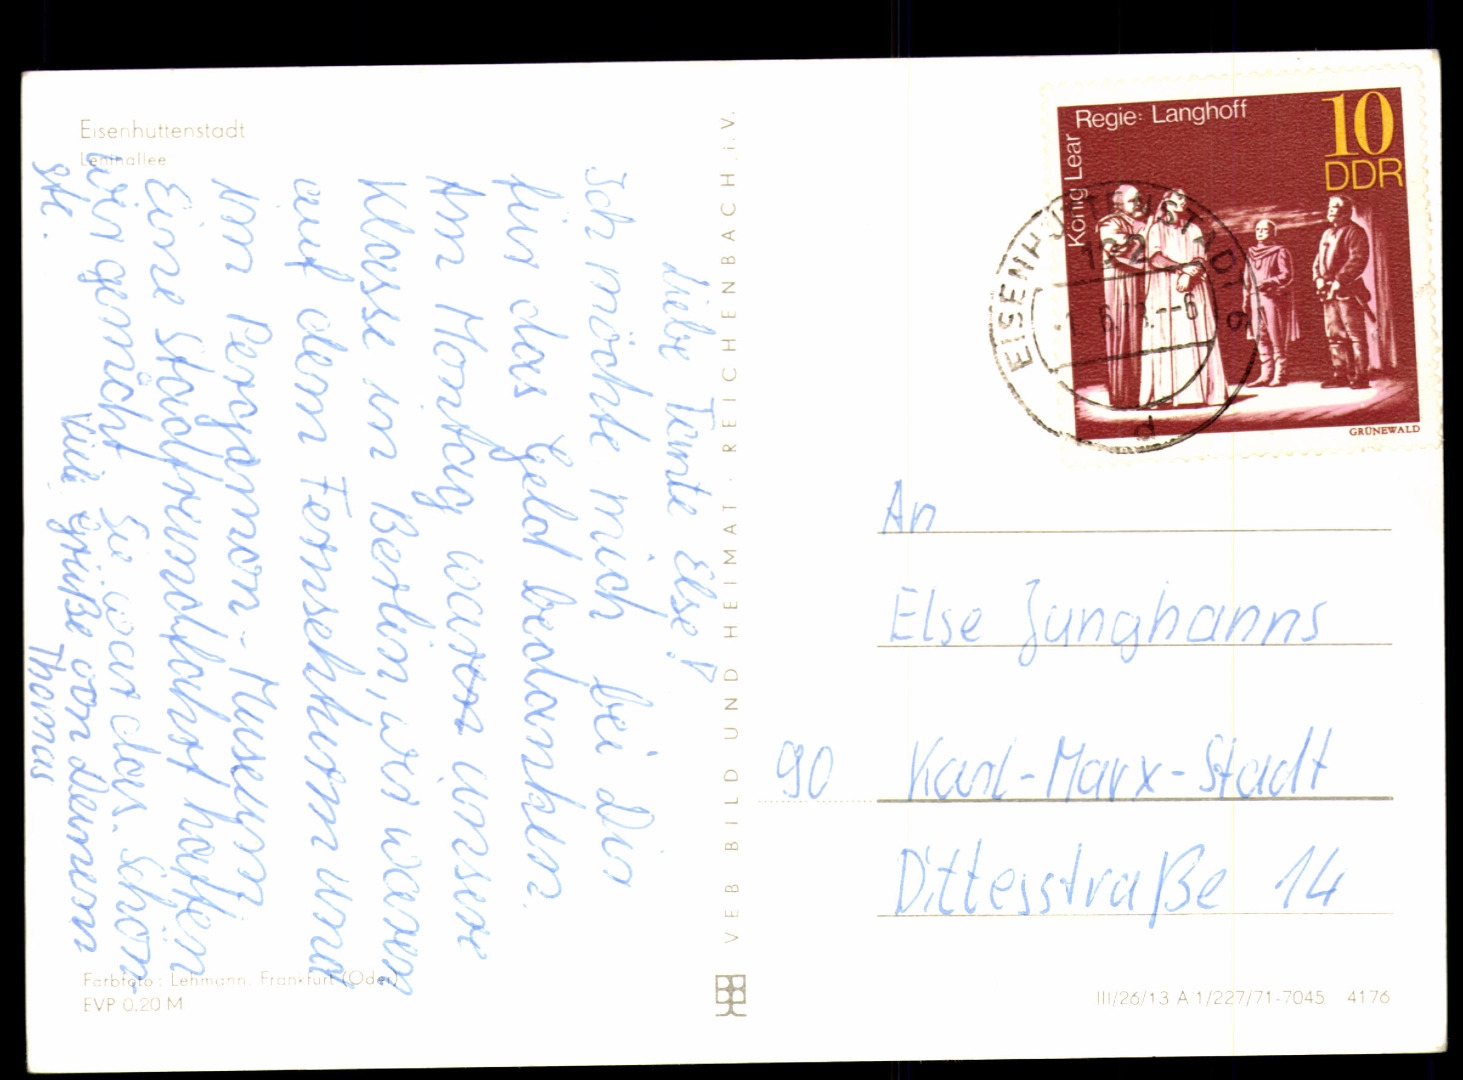 Eisenhüttenstadt
Leninallee
Liebe Tante Else!
Ich möchte mich bei dir
für das Geld bedanken.
Am Montag waren unsere
Klasse in Berlin, wir waren
auf dem Fernsehturm und
im Pergamon-Museum.
Eine Stadtrundfahrt hatten
wir gemacht. Sie war das. Schön
ste.
Viele Grüße von deinem
Thomas
Farbfoto: Lehmann, Frankfurt (Oder)
EVP 0.20 M
VEB BILD UND HEIMAT · REICHENBACH i. V.
Regie: Langhoff
König Lear
10
DDR
GRÜNEWALD
EISENHÜTTENSTADT
122
d
An
Else Junghanns
90 Karl-Marx-Stadt
Dittesstraße 14
III/26/13 A 1/227/71-7045 4176